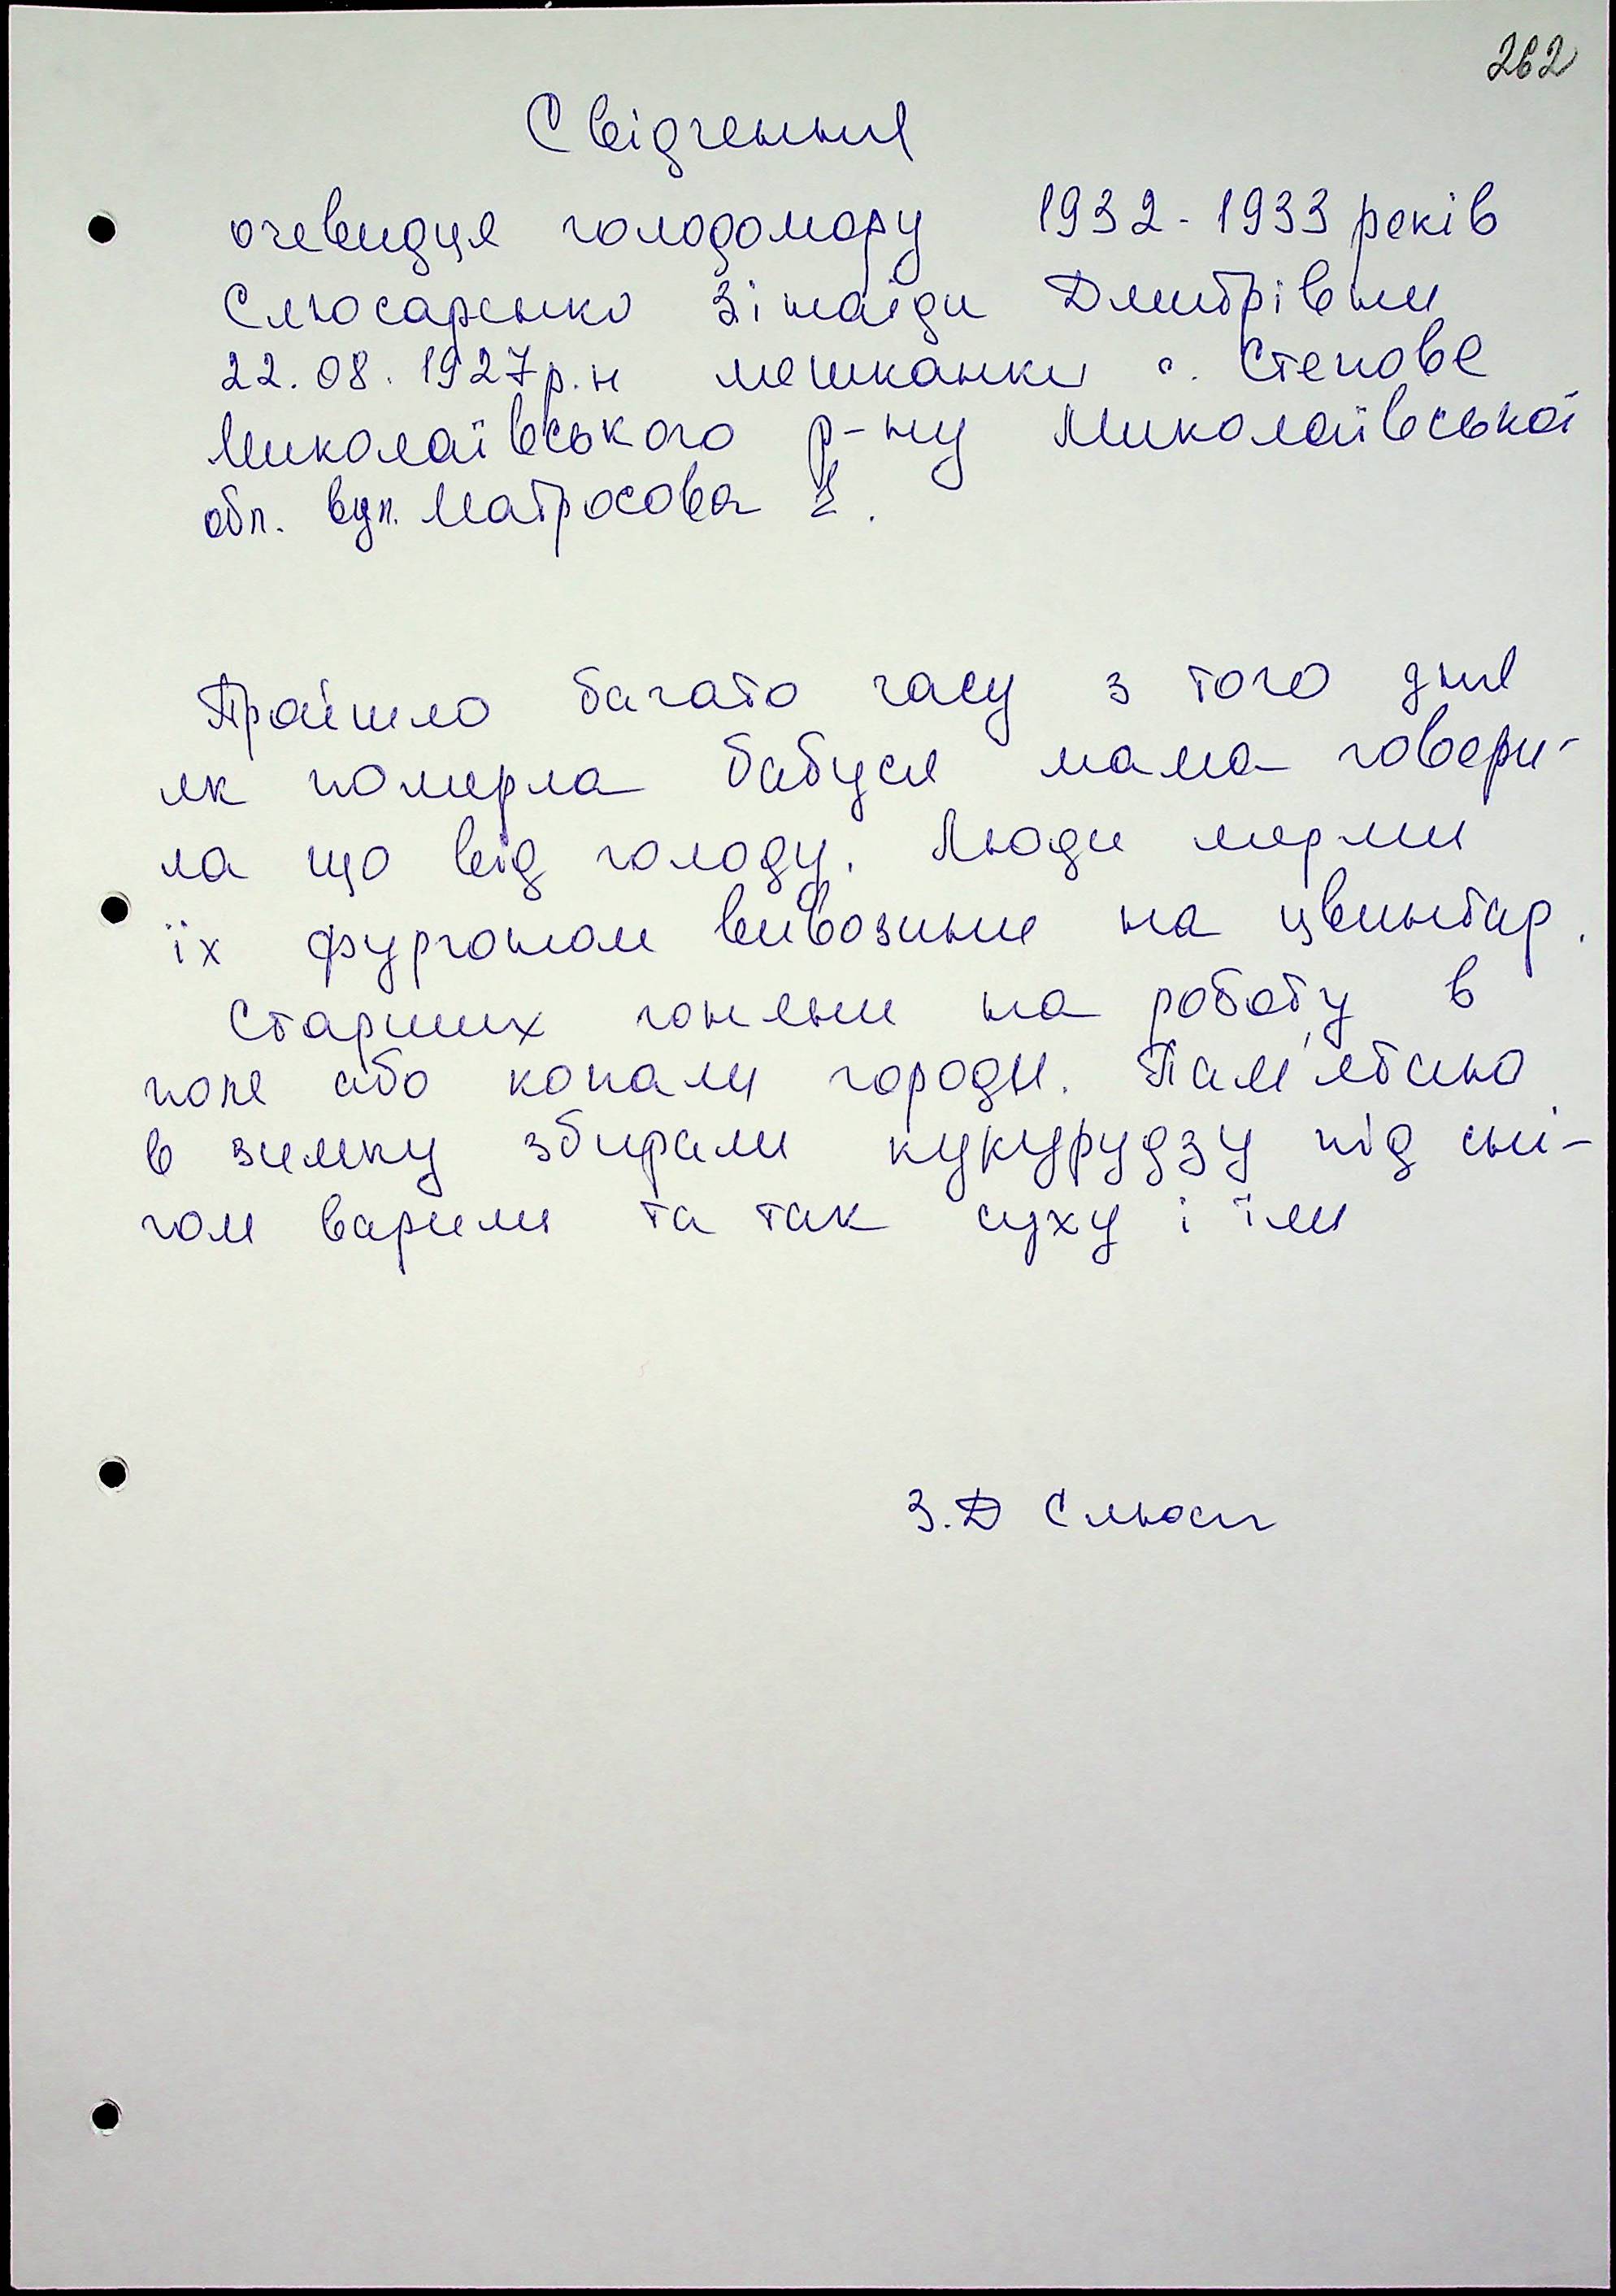 262
Свідчення
очевидця голодомору 1932-1933 років
Слюсаренко Зінаїди Дмитрівни
22.08.1927р.н мешканки с. Степове
Миколаївського р-ну Миколаївської
обл. вул. Матросова
Пройшло багато часу з того дня
як померла бабуся мама говори-
ла що від голоду. Люди мерли
їх фургоном вивозили на цвинтар.
Старших гоняли на роботу в
поле або копали городи. Пам'ятаю
в зимку збирали кукурудзу під сні-
гом варили та так суху і їли
З.Д Слюса